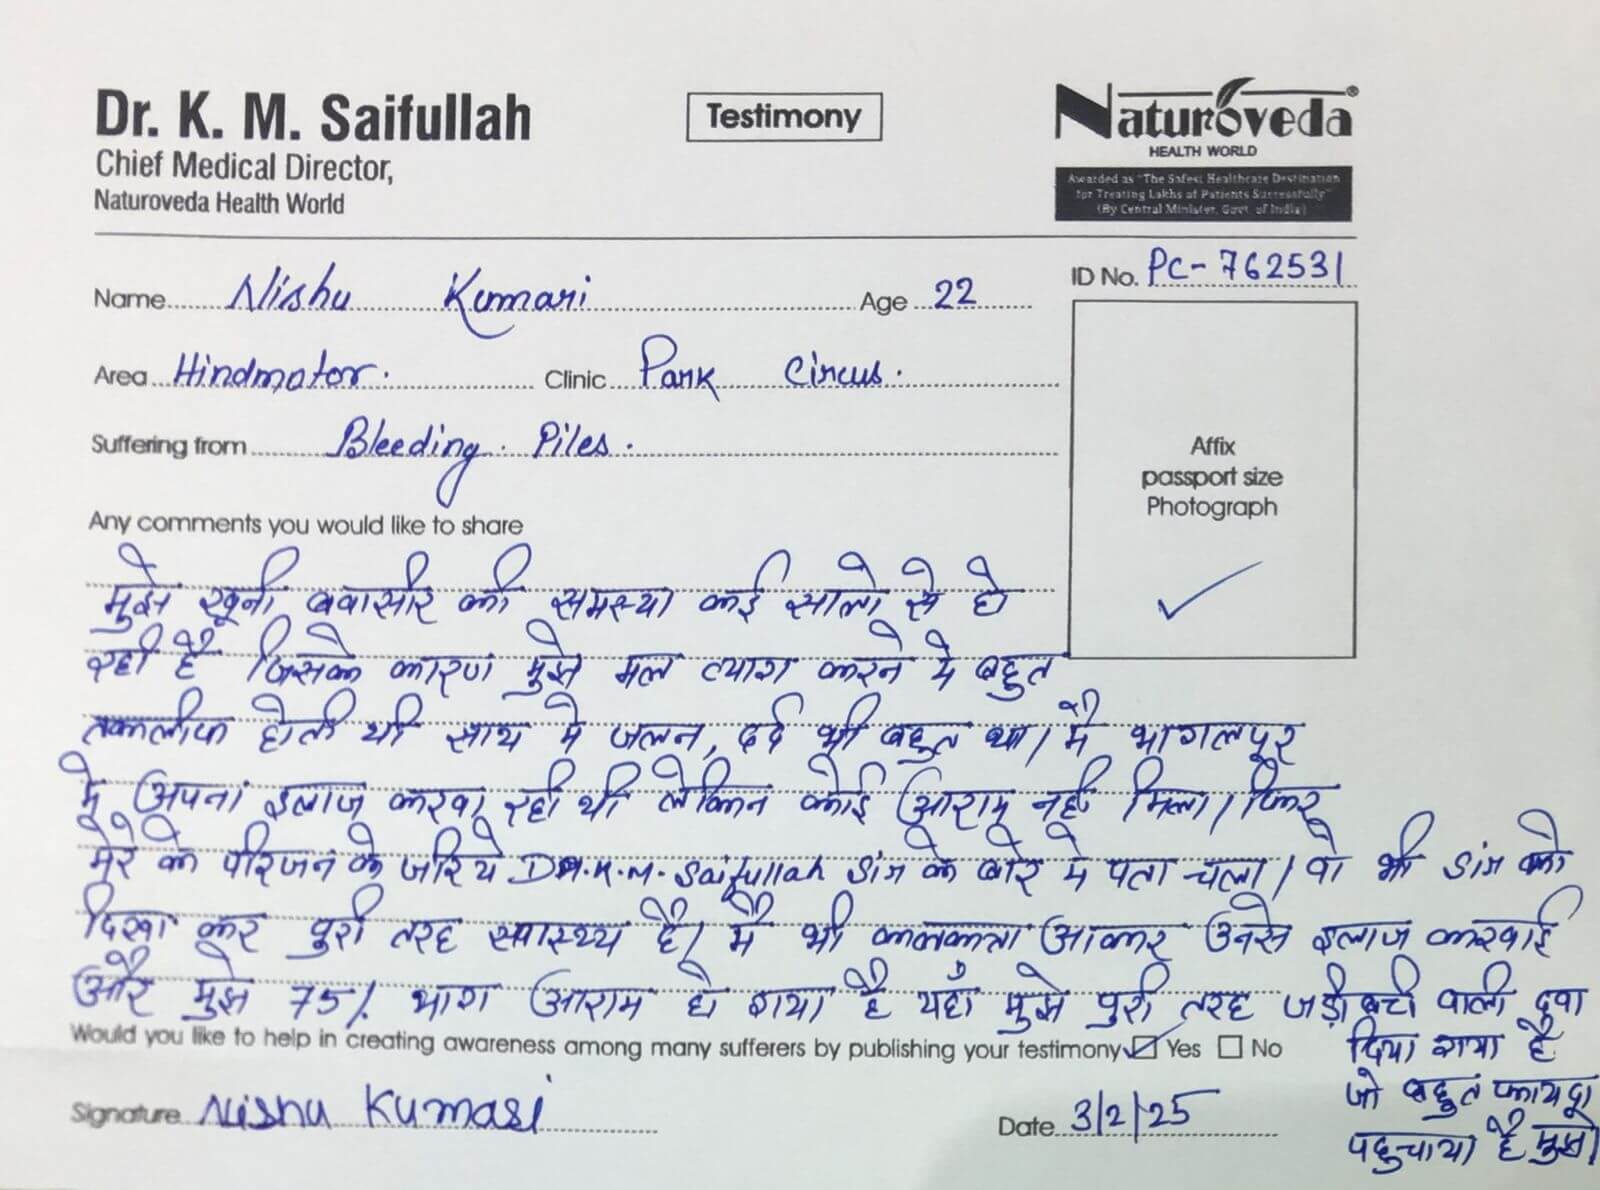 Dr. K. M. Saifullah
Chief Medical Director,
Naturoveda Health World
Testimony
NATUROVEDA®
HEALTH WORLD
Awarded as "The Safest Healthcare Destination
for Treating Lakhs of Patients Successfully"
(By Central Minister, Govt. of India)
ID No. PC-762531
Name Nishu Kumari Age 22
Area Hindmotor. Clinic Park Circus.
Suffering from Bleeding Piles.
Affix
passport size
Photograph
Any comments you would like to share
मुझे खूनी बवासीर की समस्या कई सालो से हो
रही है जिसके कारण मुझे मल त्याग करने मे बहुत
तकलीफ होती थी साथ मे जलन, दर्द भी बहुत था। मैं भागलपूर
मे अपना इलाज करवा रही थी लेकिन कोई आराम नही मिला। फिर
मेरे के परिजन के जरिये DR.K.M. Saifullah डॉ के बारे मे पता चला। वो भी को
दिखा कर पुरी तरह स्वास्थ्य है। मैं भी कलकत्ता आकर उनसे इलाज करवाई
और मुझे 75% भाग आराम हो गया है यहाँ मुझे पुरी तरह जड़ी बटी वाली दवा
दिया गया है
जो बहुत फायदा
पहुचाया है मुझे।
Would you like to help in creating awareness among many sufferers by publishing your testimony Yes No
Signature Nishu Kumari
Date 3/2/25